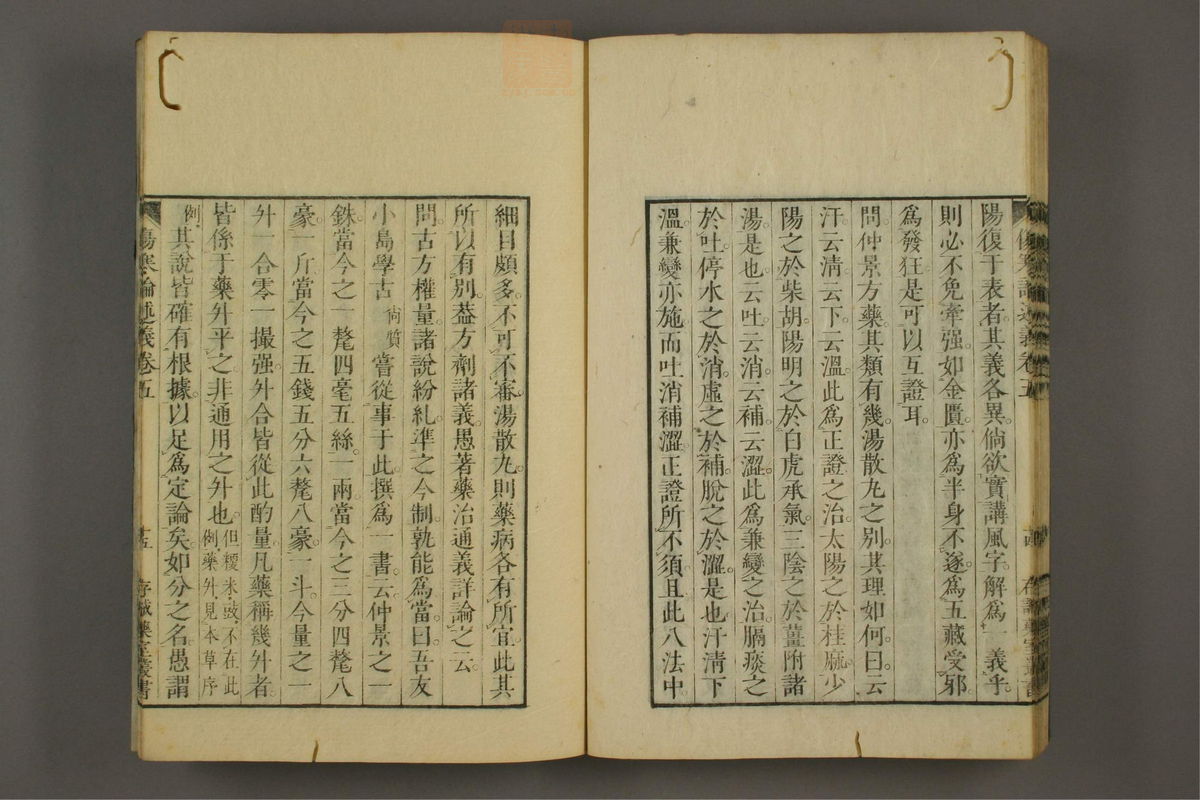 陽復于表者。其義各異。倘欲實講風字。解爲一義乎。
則必不免牽强。如金匱。亦爲半身不遂。爲五藏受邪。
爲發狂。是可以互證耳。
問仲景方藥。其類有幾。湯散丸之別。其理如何。曰。云
汗。云清。云下。云溫。此爲正證之治。太陽之於桂麻。少
陽之於柴胡。陽明之於白虎承氣。三陰之於薑附諸
湯是也。云吐。云消。云補。云澀。此爲兼變之治。膈痰之
於吐。停水之於消。虛之於補。脫之於澀是也。汗清下
溫。兼變亦施。而吐消補澀。正證所不須。且此八法中。
細目頗多。不可不審。湯散丸。則藥病各有所宜。此其
所以有別。葢方劑諸義。愚著藥治通義詳論之云。
問。古方權量。諸說紛糺。準之今制。孰能爲當。曰。吾友
小島學古 尙質 嘗從事于此。撰爲一書。云仲景之一
銖。當今之一氂四毫五絲。一兩。當今之三分四氂八
豪。一斤。當今之五錢五分六氂八豪。一斗。今量之一
升一合零一撮强。升合皆從此酌量。凡藥稱幾升者。
皆係于藥升平之。非通用之升也。但粳米。豉。不在此
例。藥升。見本草序
例。其說皆確有根據。以足爲定論矣。如分之名。愚謂
傷寒論述義卷五 十四 存誠藥室叢書
傷寒論述義卷五 十五 存誠藥室叢書